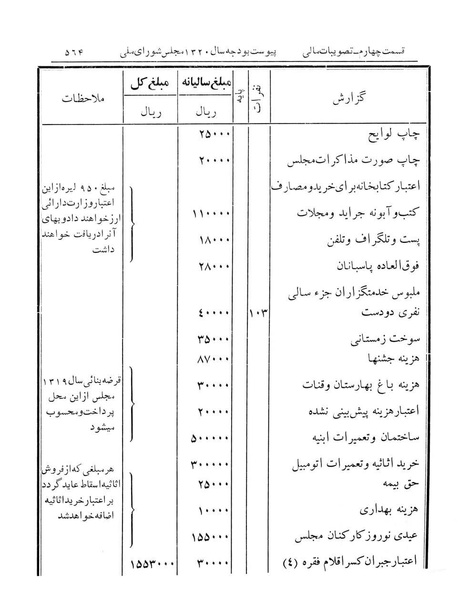 قسمت چهارم ـ تصویبات مالی پیوست بودجه سال ۱۳۲۰ مجلس شورای ملی ۵۶۴
گزارش نفرات پایه مبلغ سالیانه مبلغ کل ملاحظات
ریال ریال
چاپ لوایح ۲۵۰۰۰
چاپ صورت مذاکرات مجلس ۲۰۰۰۰
اعتبار کتابخانه برای خرید و مصارف
کتب و آبونه جراید و مجلات ۱۱۰۰۰۰
پست و تلگراف و تلفن ۱۸۰۰۰
فوق‌العاده پاسبانان ۲۸۰۰۰
مبلغ ۹۵۰ لیره از این
اعتبار وزارت دارائی
ارز خواهند داد و بهای
آنرا دریافت خواهند
داشت
ملبوس خدمتگزاران جزء سالی
نفری دو دست ۱۰۳ ۴۰۰۰۰
سوخت زمستانی ۳۵۰۰۰
هزینه جشنها ۸۷۰۰۰
هزینه باغ بهارستان و قنات ۳۰۰۰۰
اعتبار هزینه پیش‌بینی نشده ۲۰۰۰۰
ساختمان و تعمیرات ابنیه ۵۰۰۰۰۰
قرضه بنائی سال ۱۳۱۹
مجلس از این محل
پرداخت و محسوب
میشود
خرید اثاثیه و تعمیرات اتومبیل ۳۰۰۰۰۰
حق بیمه ۲۵۰۰۰
هزینه بهداری ۱۰۰۰۰
هر مبلغی که از فروش
اثاثیه اسقاط عاید گردد
بر اعتبار خرید اثاثیه
اضافه خواهد شد
عیدی نوروز کارکنان مجلس ۱۵۵۰۰۰
اعتبار جبران کسر اقلام فقره (۴) ۳۰۰۰۰ ۱۵۵۳۰۰۰